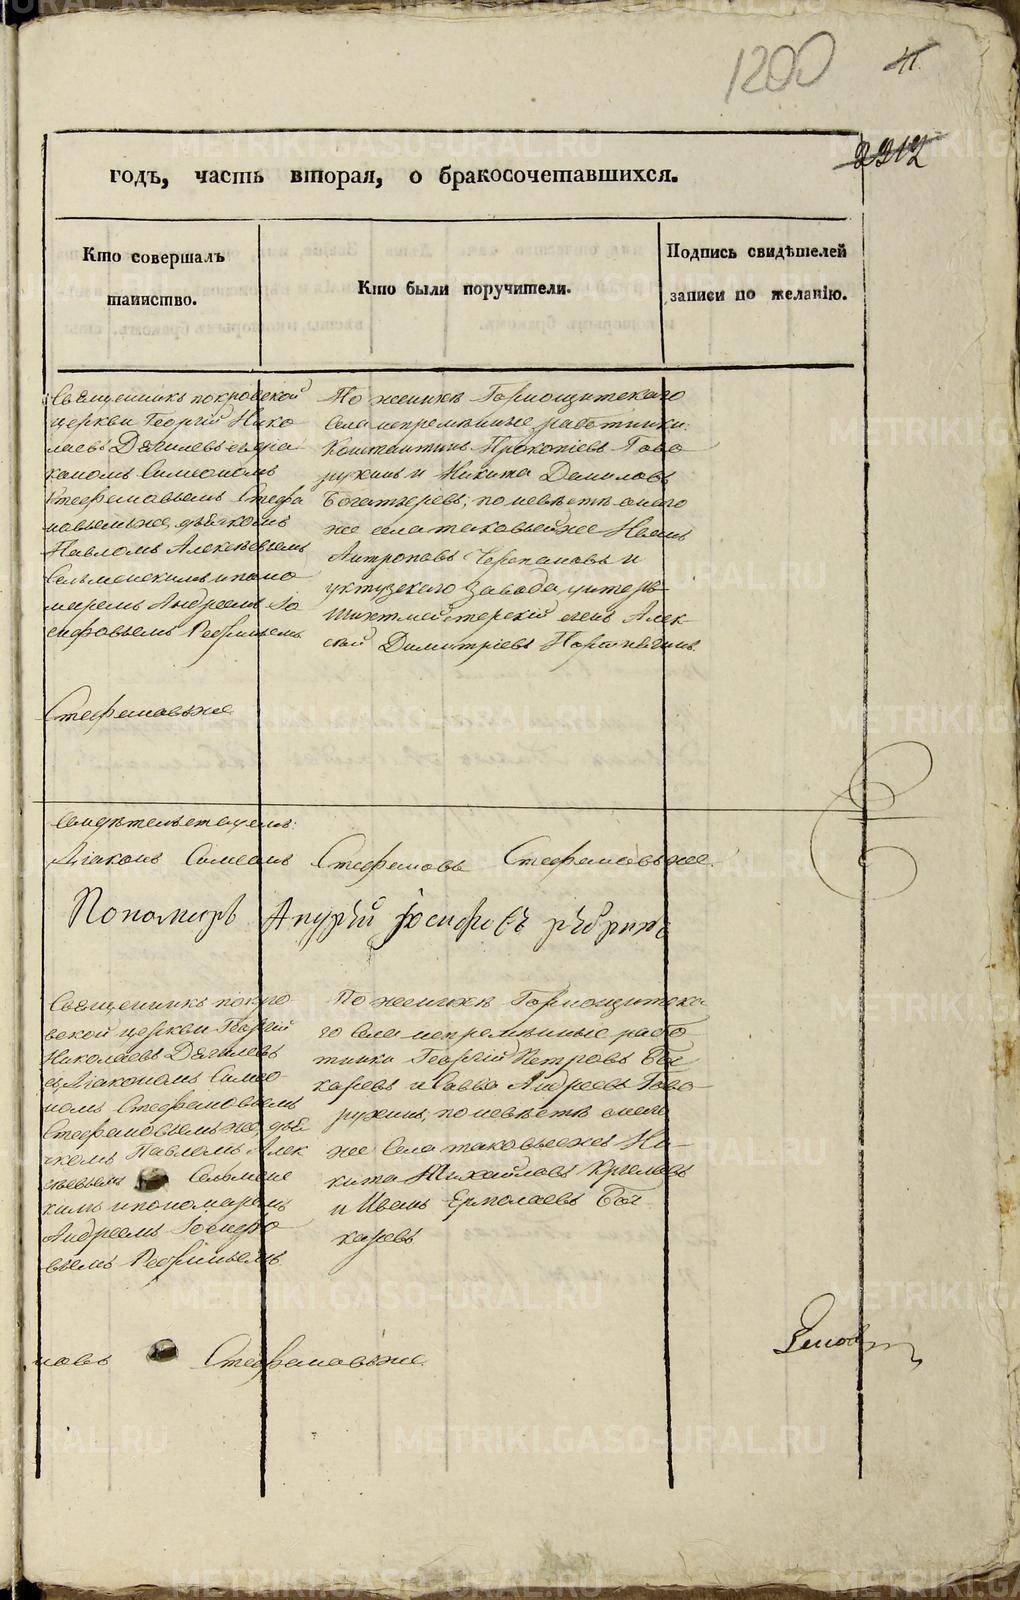 1200 41.
2212
годъ, часть вторая, о бракосочетавшихся.
Кто совершалъ
таинство.
Кто были поручители.
Подпись свидѣтелей
записи по желанію.
Священникъ покровской
церкви Георгій Нико
лаевъ Дягилевъ съ діа
кономъ Симеономъ
Стефановымъ Стефа
новымъ же, дьячкомъ
Павломъ Алексѣевымъ
Сельменскимъ и поно
маремъ Андреемъ Іо
сифовымъ
По женихѣ Горнощитскаго
села непремѣнные работники:
Константинъ Прокопіевъ Гово
рухинъ и Никита Даниловъ
Богатыревъ; по невѣстѣ онаго
же села таковый же Иванъ
Антроповъ Черепановъ и
уктускаго завода
Шихтмейстерскій сынъ Алек
сѣй Димитріевъ
Стефановъ же
свидѣтельствуемъ:
Діаконъ Симеонъ Стефановъ Стефановъ же.
Пономарь Андрей Іосифовъ
Священникъ покро
вской церкви Георгій
Николаевъ Дягилевъ
съ Діакономъ Симео
номъ Стефановымъ
Стефановымъ же, дья
чкомъ Павломъ Алек
сѣевымъ Сельменс
кимъ и пономаремъ
Андреемъ Іосифо
вымъ
По женихѣ Горнощитска
го Села непремѣнные рабо
тники Георгій Петровъ Бы
каревъ и Савва Андреевъ Гово
рухинъ, по невѣстѣ онаго
же Села таковые же Ни
кита Михайловъ
и Иванъ Ермолаевъ Бы
каревъ
новъ Стефановъ же.
METRIKI.GASO-URAL.RU